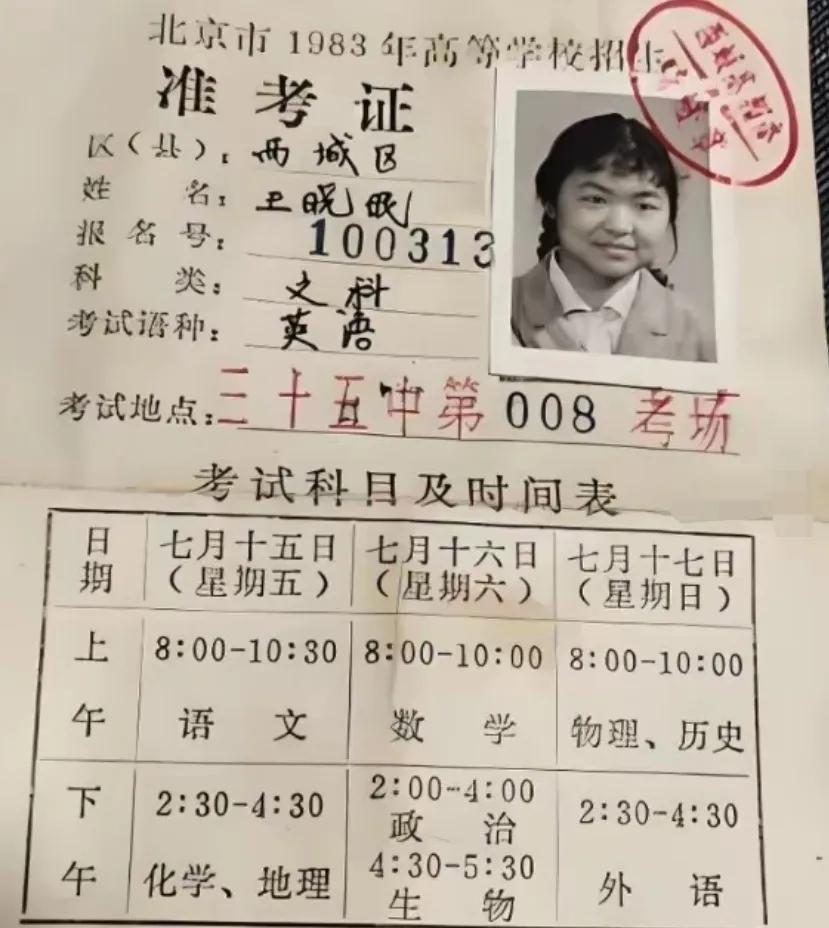 北京市1983年高等学校招生
准考证
区(县): 西城区
姓名: 王晓
报名号: 100313
科类: 文科
考试语种: 英语
考试地点: 三十五中第008考场
考试科目及时间表
日期 七月十五日(星期五) 七月十六日(星期六) 七月十七日(星期日)
上午 8:00-10:30 8:00-10:00 8:00-10:00
语文 数学 物理、历史
下午 2:30-4:30 2:00-4:00 政治 2:30-4:30
化学、地理 4:30-5:30 生物 外语